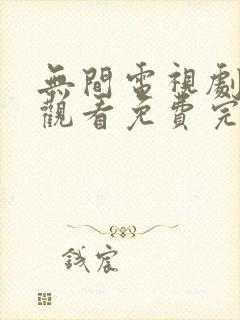 無間電視劇
觀看免費完
錢宸